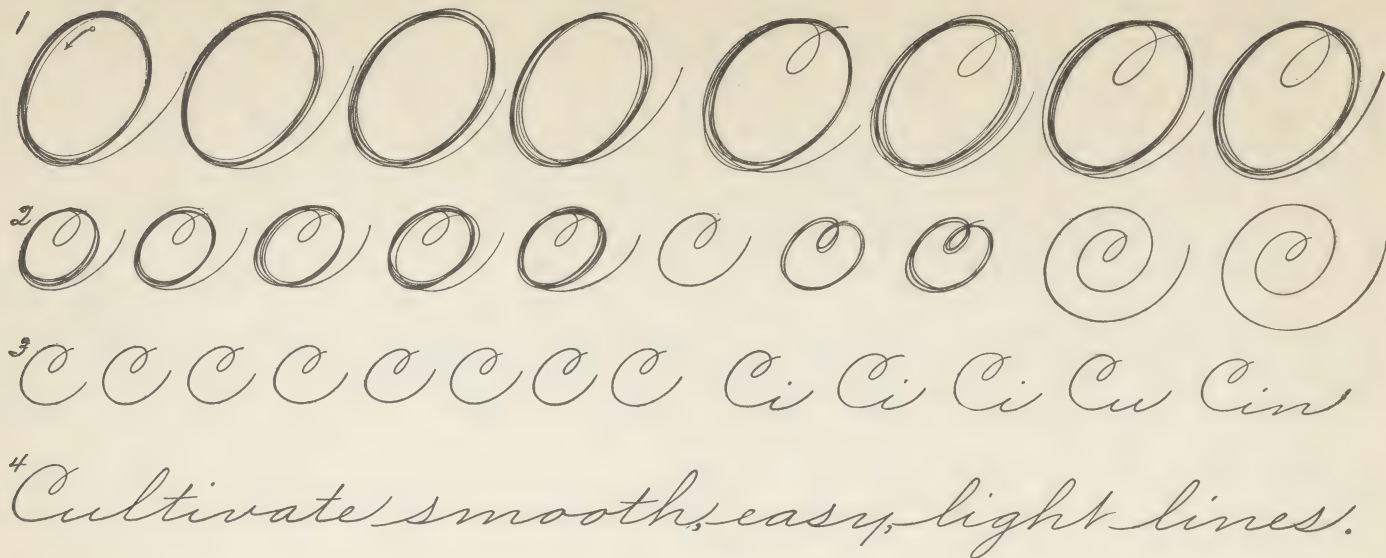 1
2
3 C C C C C C C C Ci Ci Ci Cu Cin
4 Cultivate smooth, easy, light lines.